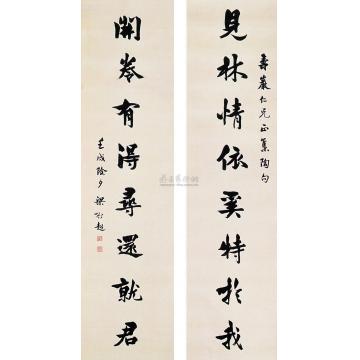 壽巖仁兄正集陶句
見林情依奚特於我
開卷有得尋還就君
壬戌除夕 梁啟超